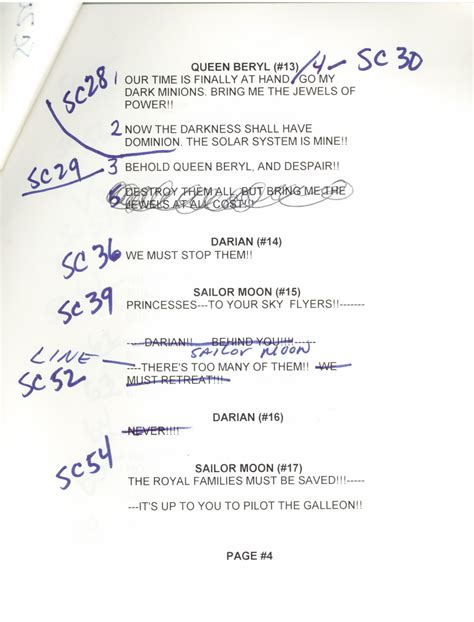 QUEEN BERYL (#13) 4 – SC 30
SC28 1 OUR TIME IS FINALLY AT HAND / GO MY
DARK MINIONS. BRING ME THE JEWELS OF
POWER!!
2 NOW THE DARKNESS SHALL HAVE
DOMINION. THE SOLAR SYSTEM IS MINE!!
SC29 3 BEHOLD QUEEN BERYL, AND DESPAIR!!
DESTROY THEM ALL, BUT BRING ME THE
JEWELS AT ALL COST!!!
DARIAN (#14)
SC36 WE MUST STOP THEM!!
SAILOR MOON (#15)
SC39 PRINCESSES---TO YOUR SKY FLYERS!!-------
----DARIAN!! BEHIND YOU!!!------
LINE SAILOR MOON
SC52 ----THERE'S TOO MANY OF THEM!! WE
MUST RETREAT!!!
DARIAN (#16)
NEVER!!!!
SC54 SAILOR MOON (#17)
THE ROYAL FAMILIES MUST BE SAVED!!!-----
---IT'S UP TO YOU TO PILOT THE GALLEON!!
PAGE #4